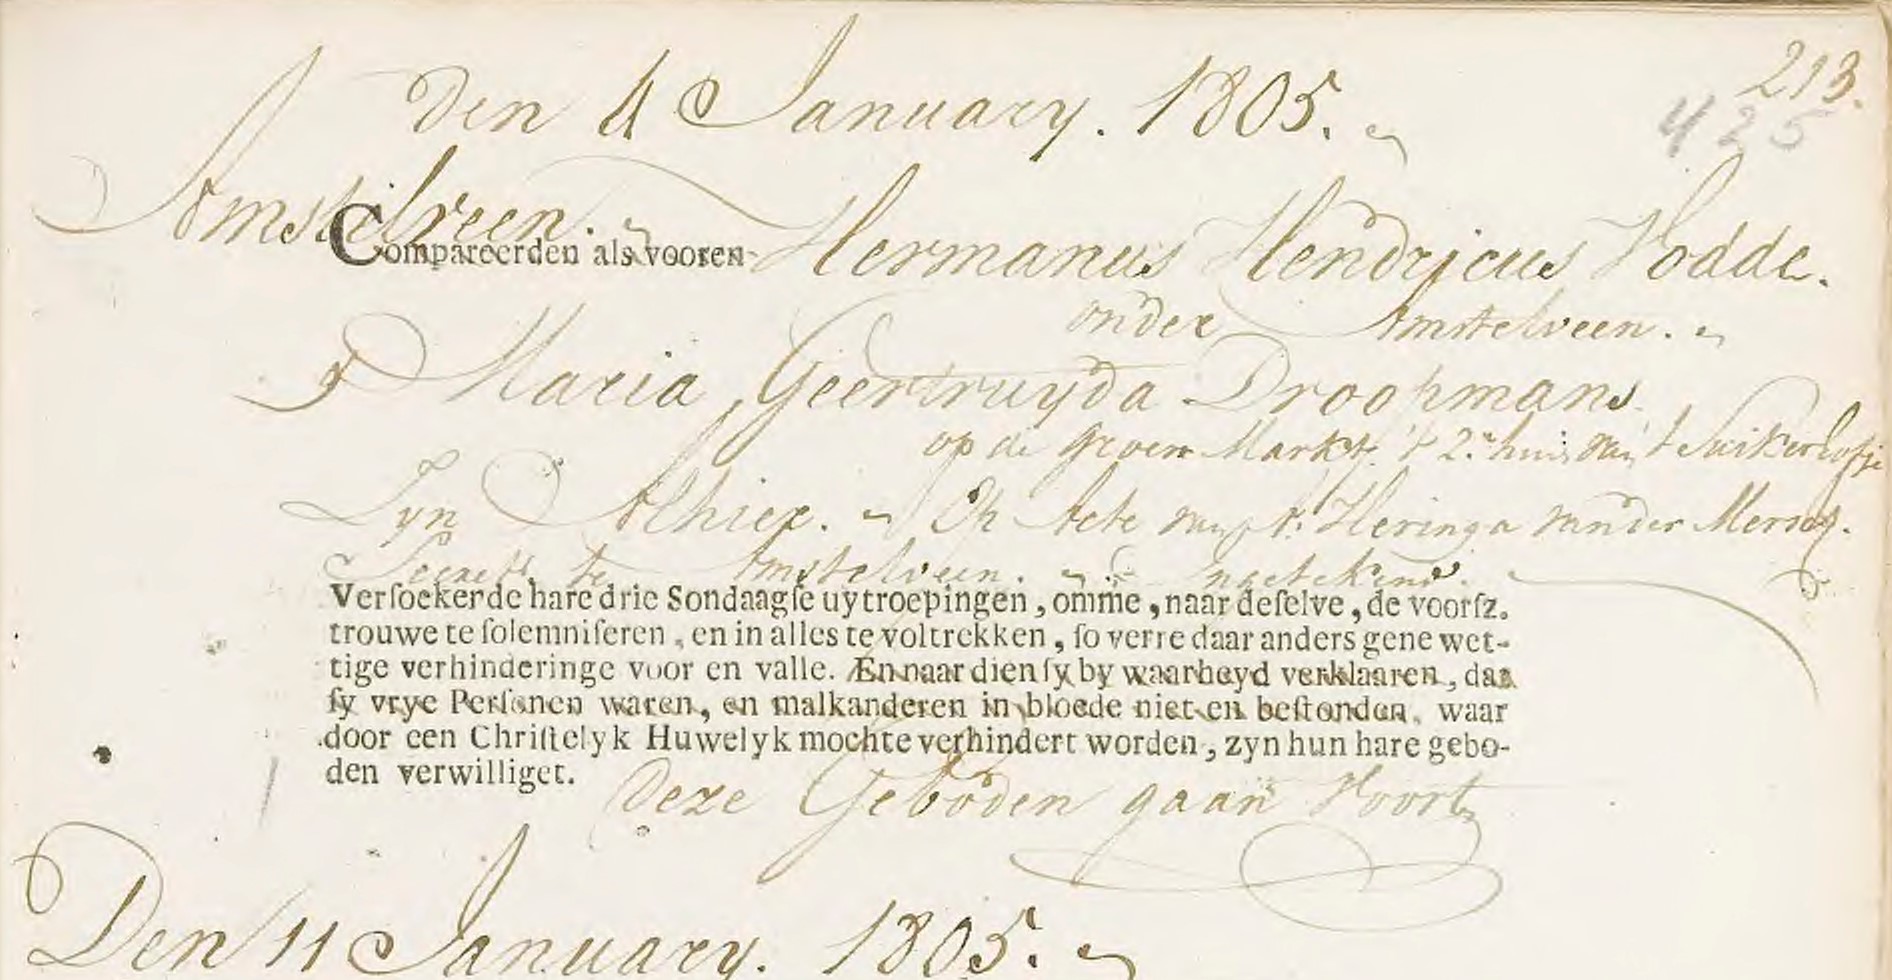 213.
425
Den 4 January. 1805.
Amstelveen.
Compareerden als vooren Hermanus Hendricus Hodde.
onder Amstelveen.
& Maria Geertruyda Droopmans
op de groen Markt. 't 2e huis van 't Suikerhofje
Zyn Alhier. Op Acte van Heringa van der
Secrets te Amstelveen. ingetekend.
Verſoekerde hare drie Sondaagſe uytroepingen, omme, naar deſelve, de voorſz.
trouwe te ſolemniſeren, en in alles te voltrekken, ſo verre daar anders gene wet-
tige verhinderinge voor en valle. Æn naar dien ſy by waarheyd verklaaren, dat
ſy vrye Perſonen waren, en malkanderen in bloede niet en beſtonden, waar
door een Chriſtelyk Huwelyk mochte verhindert worden, zyn hun hare gebo-
den verwilliget.
Deze Geboden gaan Voort
Den 11 January. 1805.